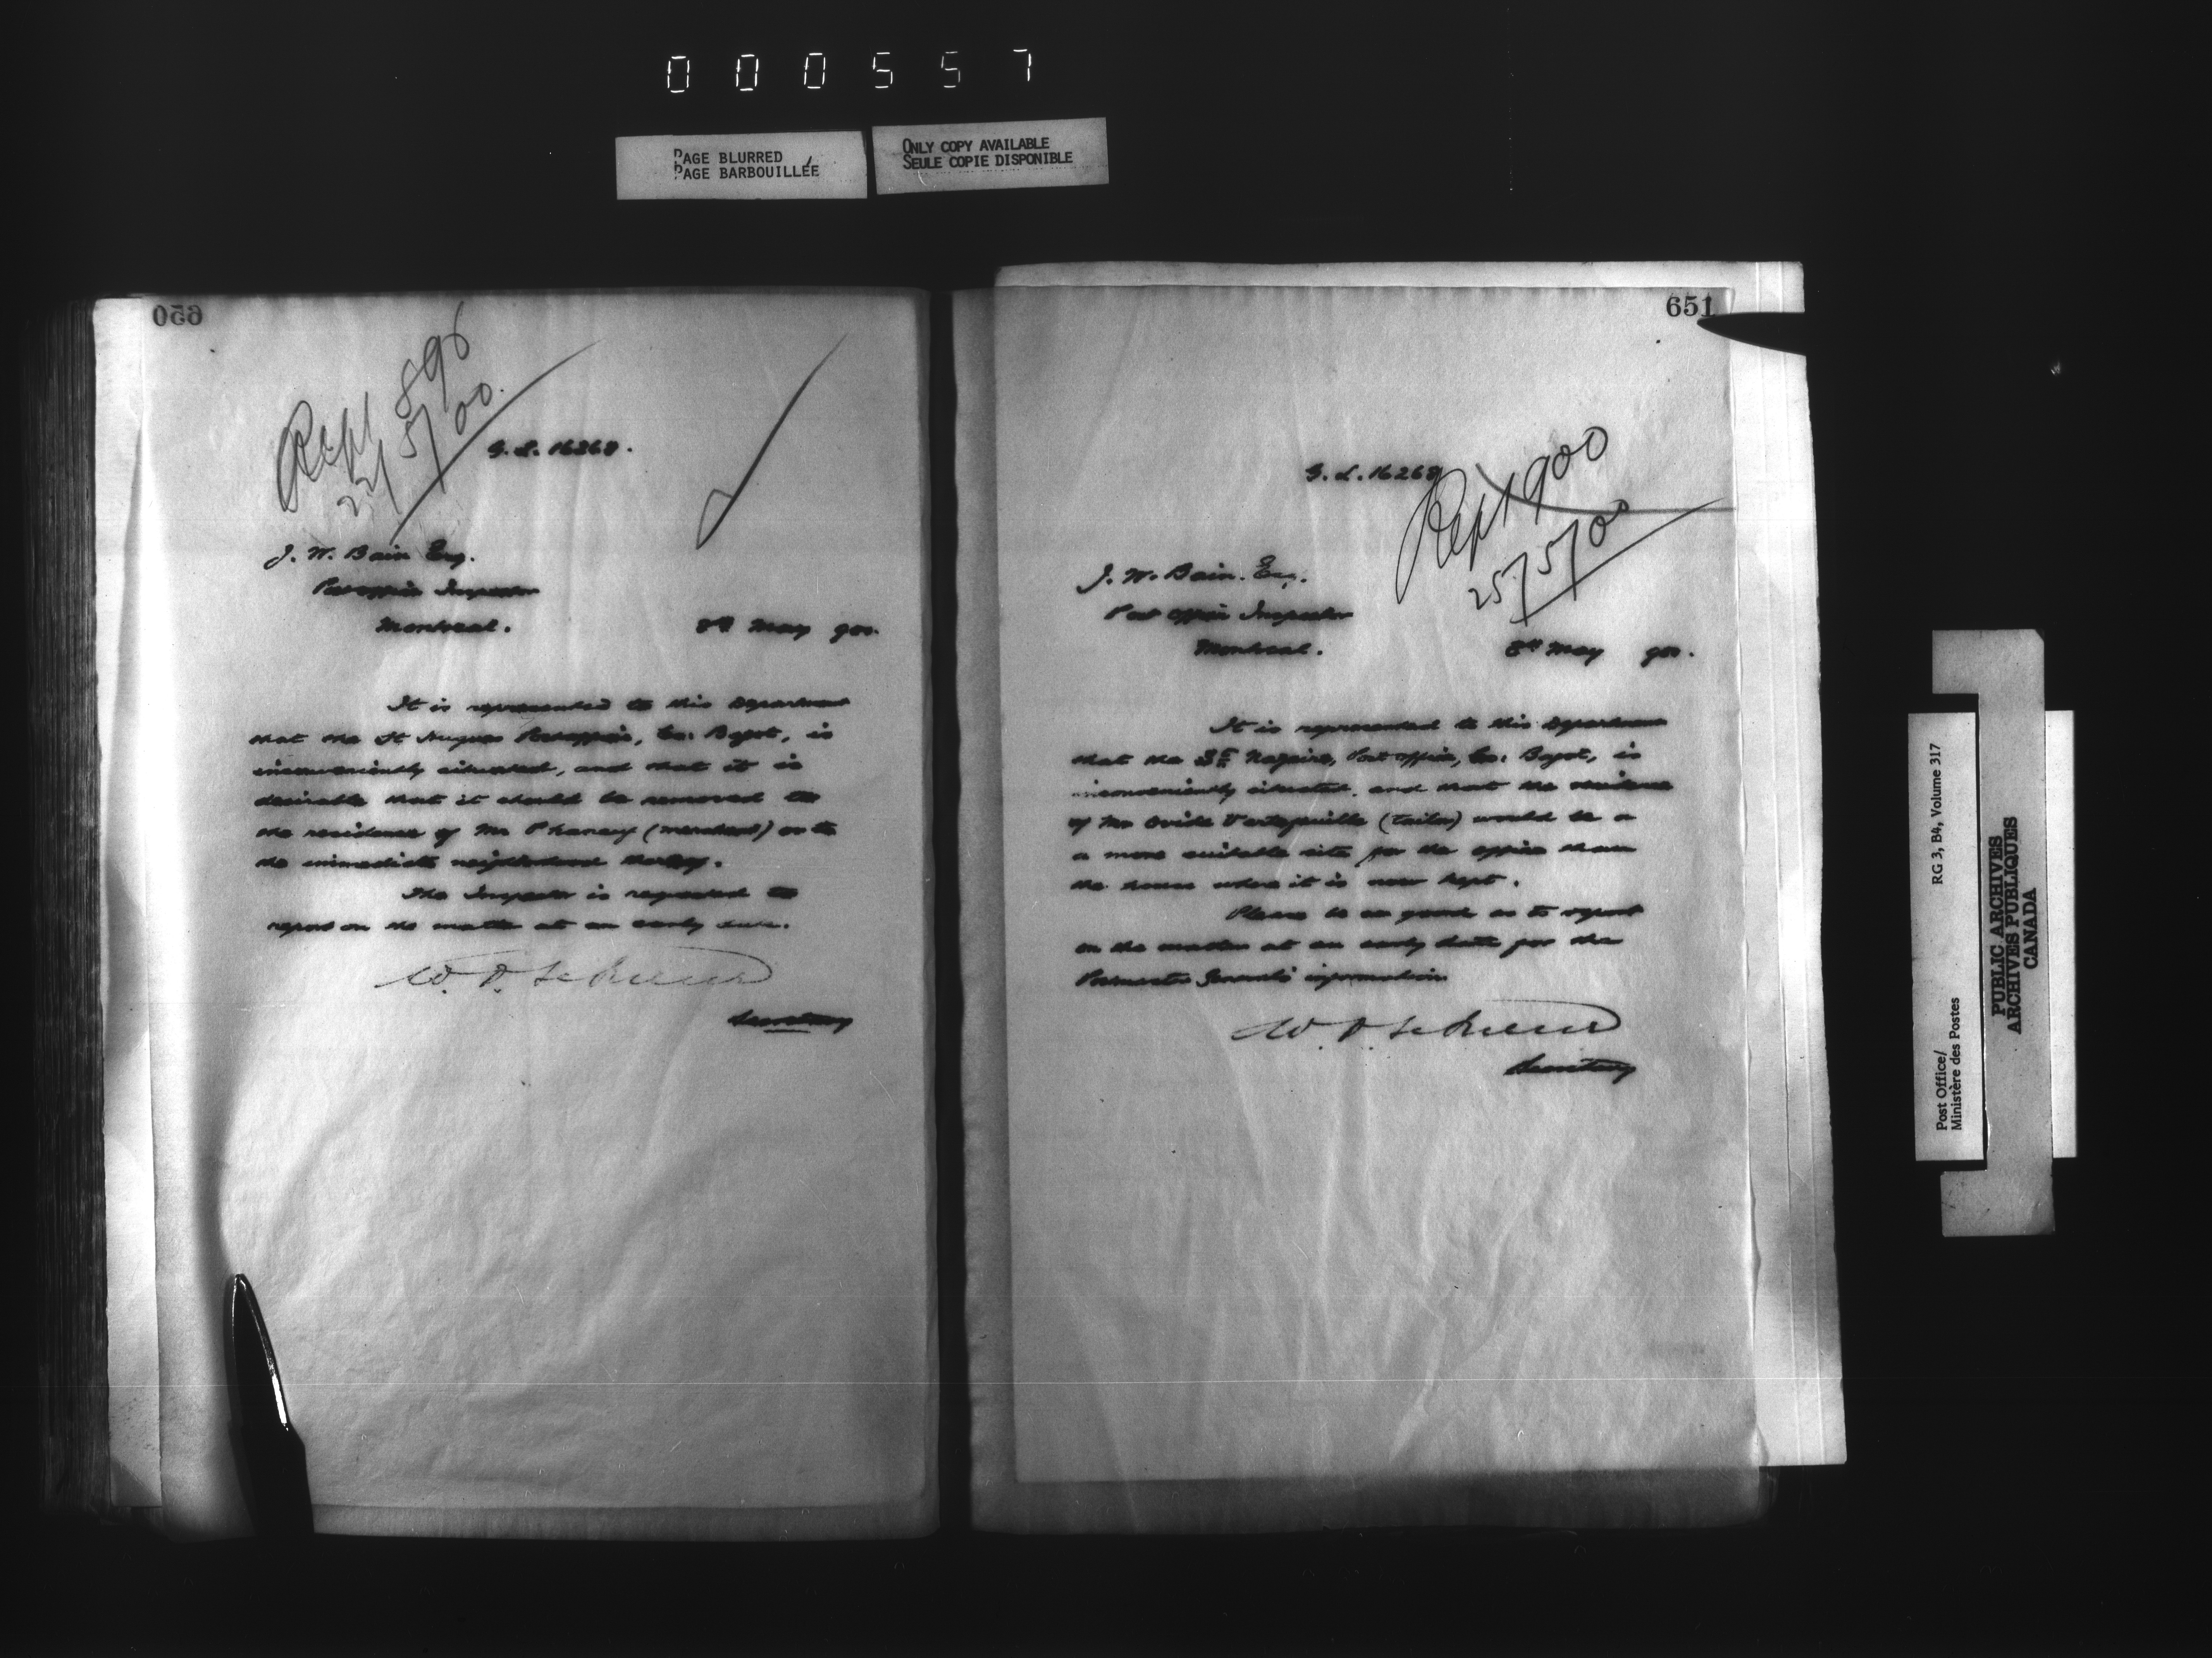 000557
PAGE BLURRED
PAGE BARBOUILLÉE
ONLY COPY AVAILABLE
SEULE COPIE DISPONIBLE
650
Rept 896
5/00.
G. L. 16268.
J. W. Bain Esq.
Post office Inspector
Montreal.
8th May 900.
It is represented to this Department
that the St Hugues Post office, Co: Bagot, is
inconveniently situated, and that it is
desirable that it should be removed to
the residence of Mr (merchant) or to
the immediate neighborhood thereof.
The Inspector is requested to
report on the matter at an early date.
W. D. LeSueur
Secretary
651
G. L. 16268
Rept 900
25/5/00
J. W. Bain. Esq.
Post office Inspector
Montreal.
8th May 900.
It is represented to this Department
that the St Nazaire, Post office, Co: Bagot, is
inconveniently situated, and that the residence
of Mr Ovide Vertefeuille (tailor) would be a
a more suitable site for the office than
the house where it is now kept.
Please be so good as to report
on the matter at an early date for the
Postmaster General's information
W. D. LeSueur
Secretary
Post Office/
Ministère des Postes
RG 3, B4, Volume 317
PUBLIC ARCHIVES
ARCHIVES PUBLIQUES
CANADA